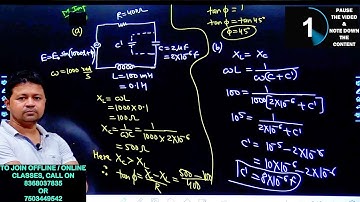 1st Imp
(a)
R = 400Ω
C'
C = 2μF
= 2×10⁻⁶F
E = E₀ sin(1000t+
ω = 1000 rad/s
L = 100mH
= 0.1H
X_L = ωL
= 1000×0.1
= 100Ω
X_C = 1/ωC = 1/(1000×2×10⁻⁶)
= 500Ω
Here X_C > X_L
∴ tanϕ = (X_C - X_L)/R = (500-100)/400
tanϕ = 1
tanϕ = tan45°
ϕ = 45°
(b) X_L = X_C
ωL = 1/(ω(C+C'))
100 = 1/(1000[2×10⁻⁶+C'])
10⁵ = 1/(2×10⁻⁶+C')
C' = 10⁻⁵-2×10⁻⁶
= 10×10⁻⁶-2×10⁻⁶
C' = 8×10⁻⁶F
1
PAUSE
THE VIDEO
&
NOTE DOWN
THE
CONTENT
TO JOIN OFFLINE / ONLINE
CLASSES, CALL ON
8368037835
OR
7503449542